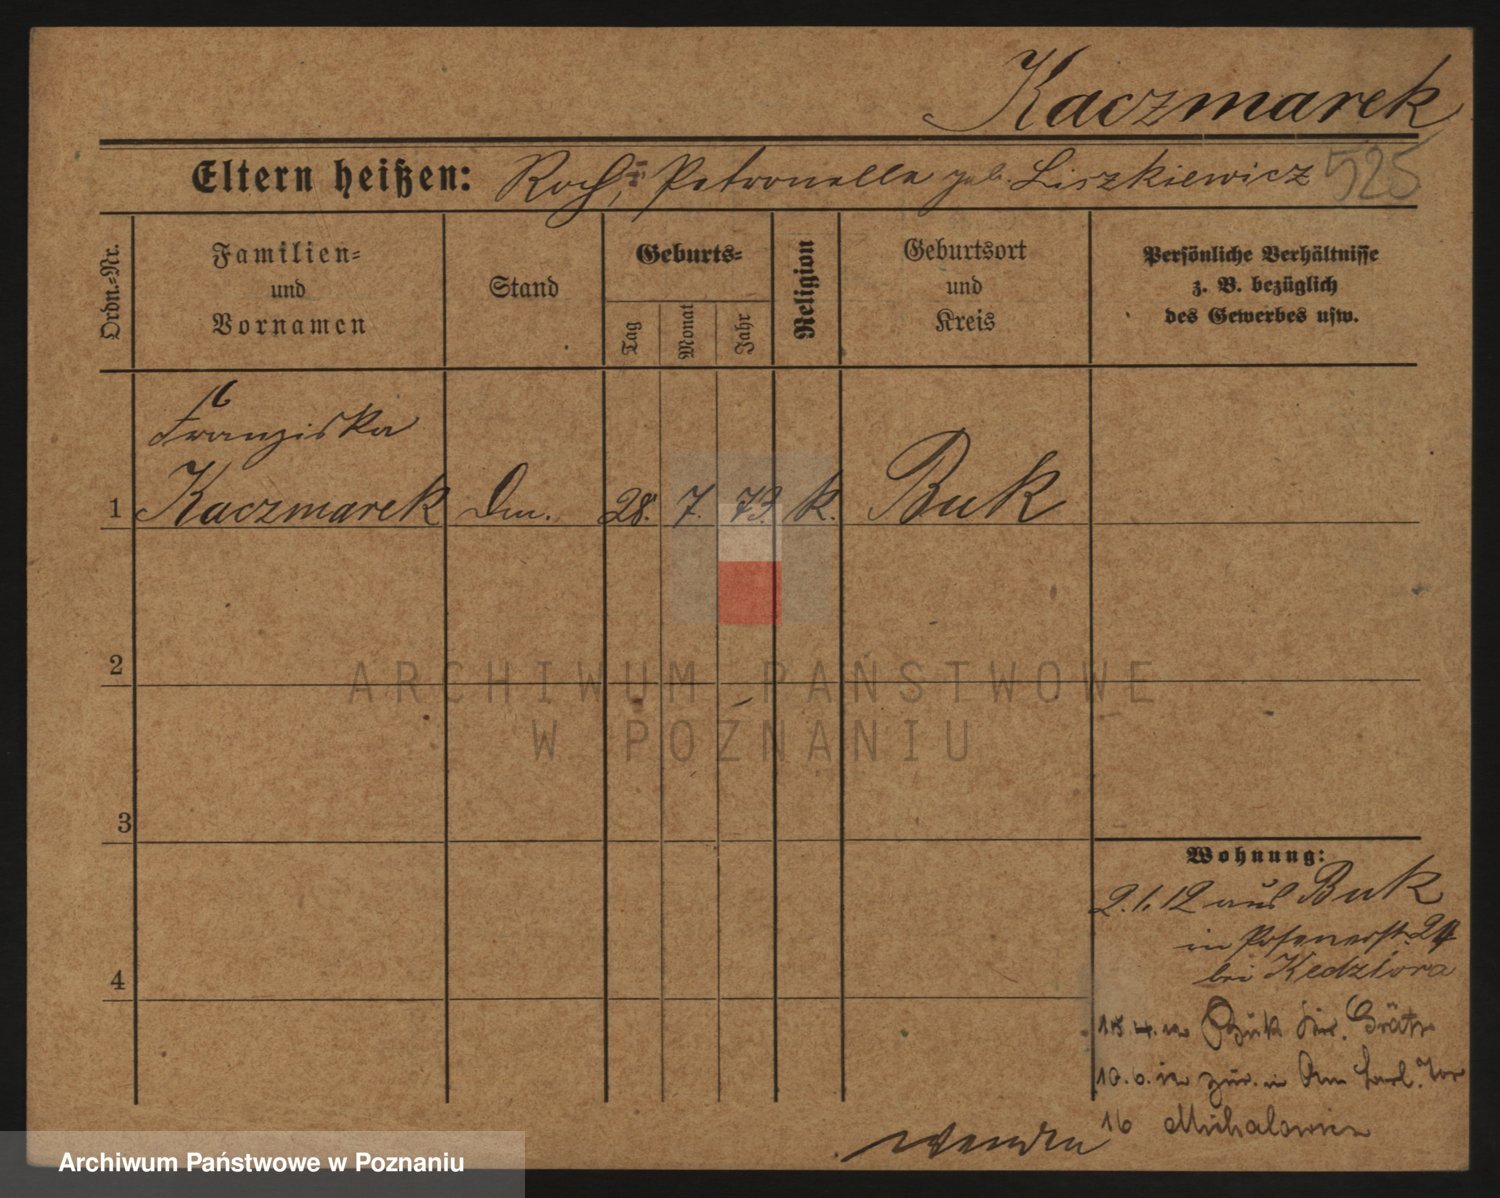 Kaczmarek
Eltern heißen: Roch, Petronella geb. Liszkiewicz 525
Ordn.-Nr.
Familien-
und
Vornamen
Stand
Geburts-
Tag
Monat
Jahr
Religion
Geburtsort
und
Kreis
Persönliche Verhältnisse
z. B. bezüglich
des Gewerbes usw.
Franziska
1 Kaczmarek Dm. 28. 7. 73. k. Buk
2
ARCHIWUM PAŃSTWOWE
W POZNANIU
3
Wohnung:
2.1.12 aus Buk
in Posenerstr. 24
bei Kedziora
4
15.4.12 Buk Kr. Grätz
10.6.12 zur. in Am Berl. Tor
16 Michalowicz
wenden
Archiwum Państwowe w Poznaniu